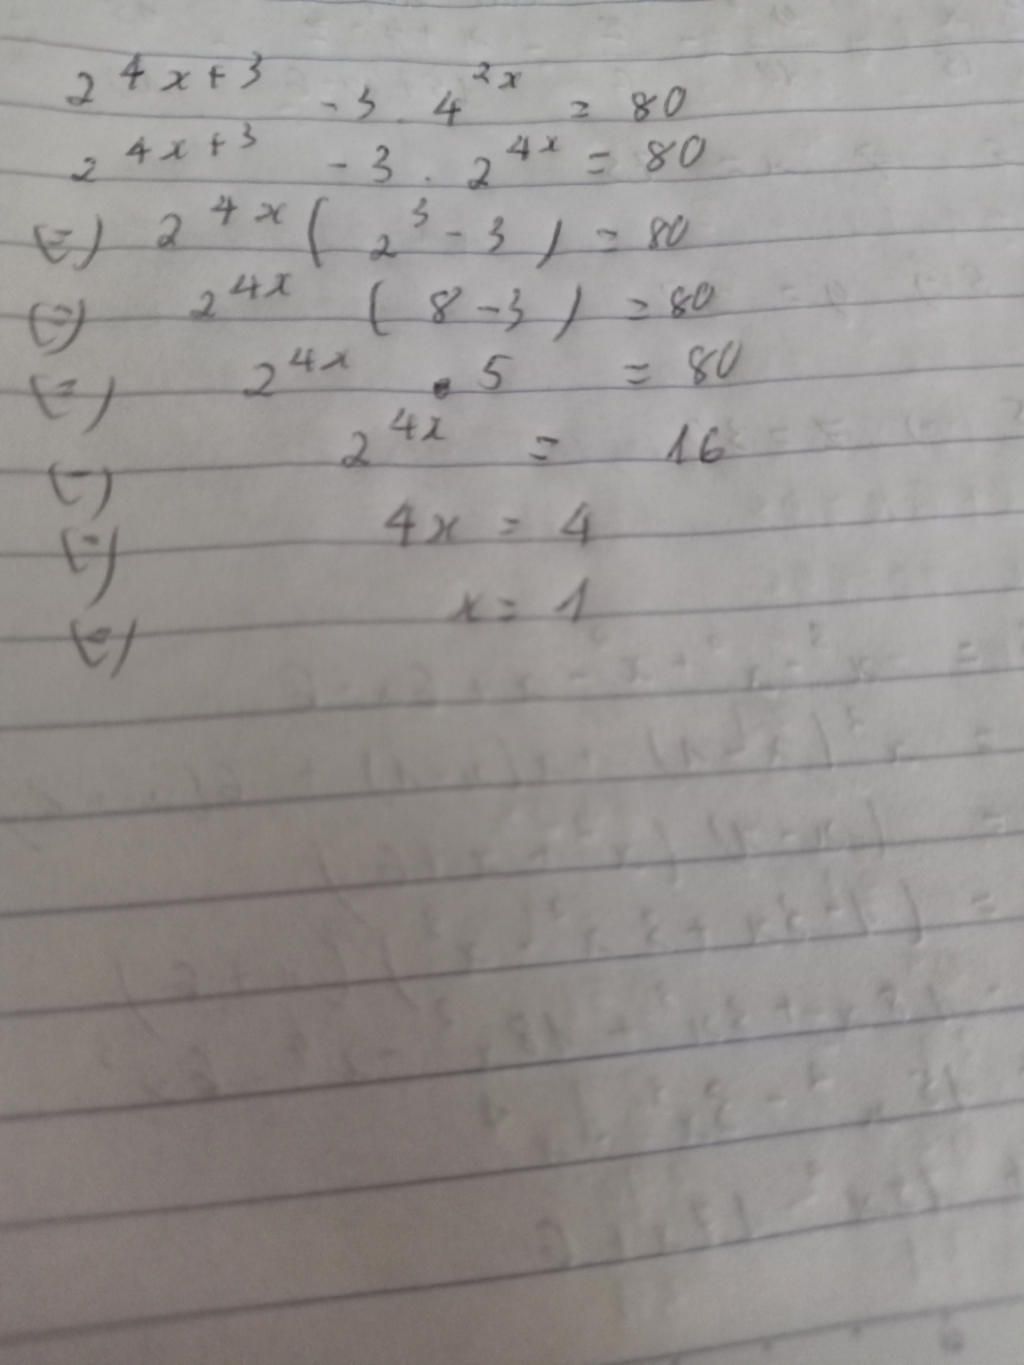 2^{4x+3} - 3 . 4^{2x} = 80
2^{4x+3} - 3 . 2^{4x} = 80
(=) 2^{4x} ( 2^3 - 3 ) = 80
(=) 2^{4x} ( 8 - 3 ) = 80
(=) 2^{4x} . 5 = 80
(=) 2^{4x} = 16
(=) 4x = 4
(=) x = 1